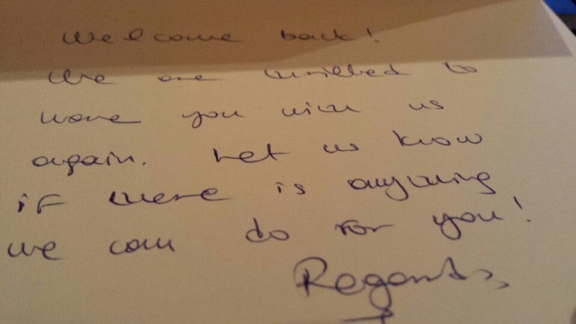 Welcome back!
We are thrilled to
have you with us
again. Let us know
if there is anything
we can do for you!
Regards,